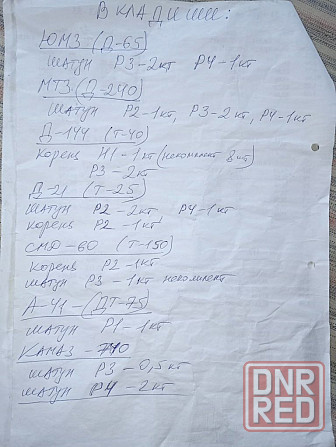 ВКЛАДИШИ:
ЮМЗ (Д-65)
шатун Р3-2кт Р4-1кт
МТЗ (Д-240)
шатун Р2-1кт, Р3-2кт, Р4-1кт
Д-144 (Т-40)
корень Н1-1кт (некомплект 8шт)
Р3-2кт
Д-21 (Т-25)
шатун Р2-2кт Р4-1кт
корень Р2-1кт
СМД-60 (Т-150)
корень Р2-1кт
шатун Р3-1кт некомплект
А-41-(ДТ-75)
шатун Р1-1кт
КАМАЗ-740
шатун Р3-0,5кт
шатун Р4-2кт
DNR
RED